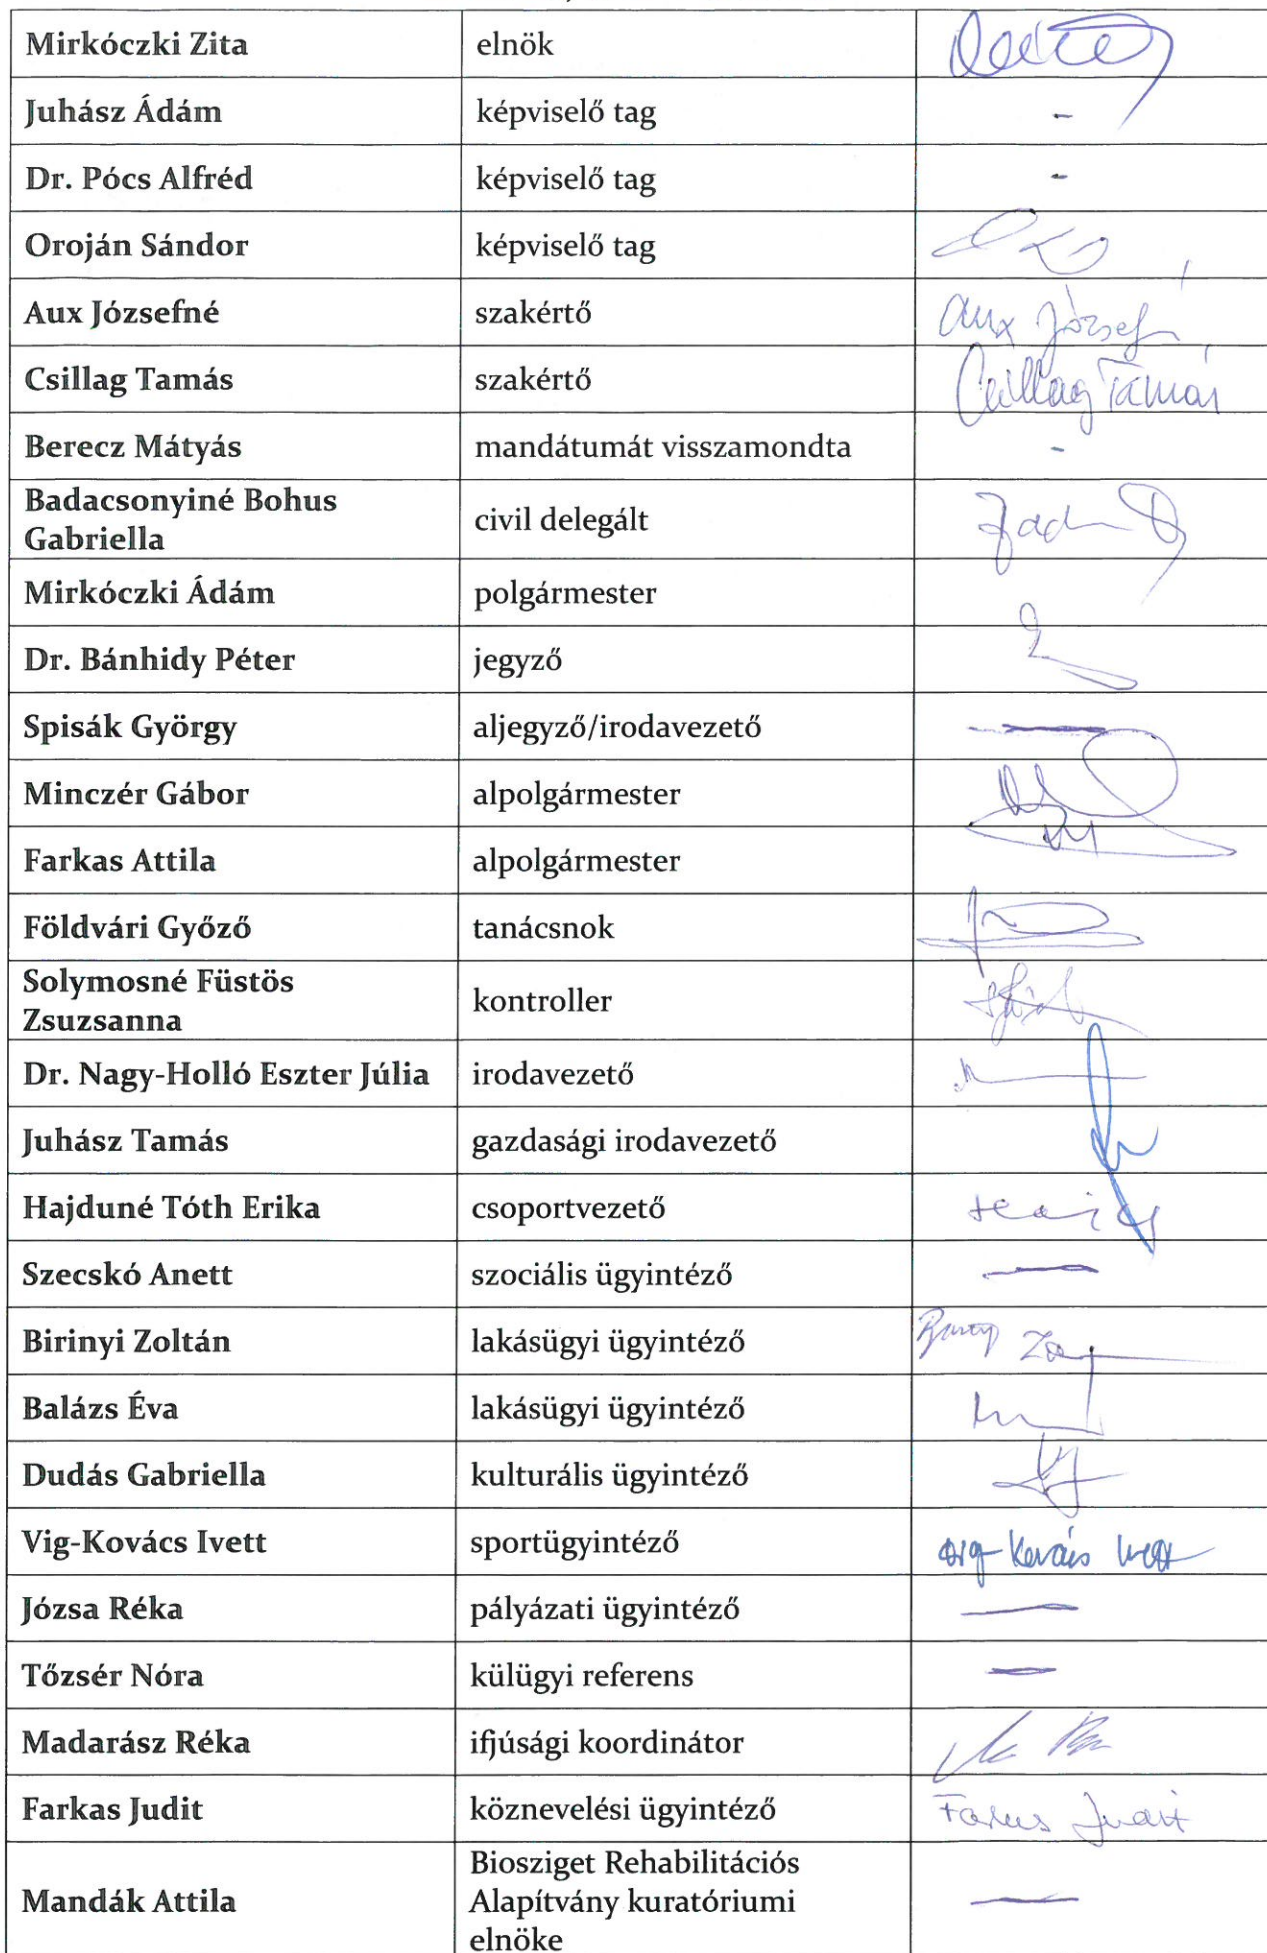 Mirkóczki Zita elnök
Juhász Ádám képviselő tag -
Dr. Pócs Alfréd képviselő tag -
Oroján Sándor képviselő tag
Aux Józsefné szakértő Aux József
Csillag Tamás szakértő Csillag Tamás
Berecz Mátyás mandátumát visszamondta -
Badacsonyiné Bohus
Gabriella civil delegált
Mirkóczki Ádám polgármester
Dr. Bánhidy Péter jegyző
Spisák György aljegyző/irodavezető —
Minczér Gábor alpolgármester
Farkas Attila alpolgármester
Földvári Győző tanácsnok
Solymosné Füstös
Zsuzsanna kontroller
Dr. Nagy-Holló Eszter Júlia irodavezető
Juhász Tamás gazdasági irodavezető
Hajduné Tóth Erika csoportvezető
Szecskó Anett szociális ügyintéző —
Birinyi Zoltán lakásügyi ügyintéző
Balázs Éva lakásügyi ügyintéző
Dudás Gabriella kulturális ügyintéző
Vig-Kovács Ivett sportügyintéző Vig-Kovács Ivett
Józsa Réka pályázati ügyintéző —
Tőzsér Nóra külügyi referens —
Madarász Réka ifjúsági koordinátor
Farkas Judit köznevelési ügyintéző Farkas Judit
Mandák Attila Biosziget Rehabilitációs
Alapítvány kuratóriumi
elnöke —